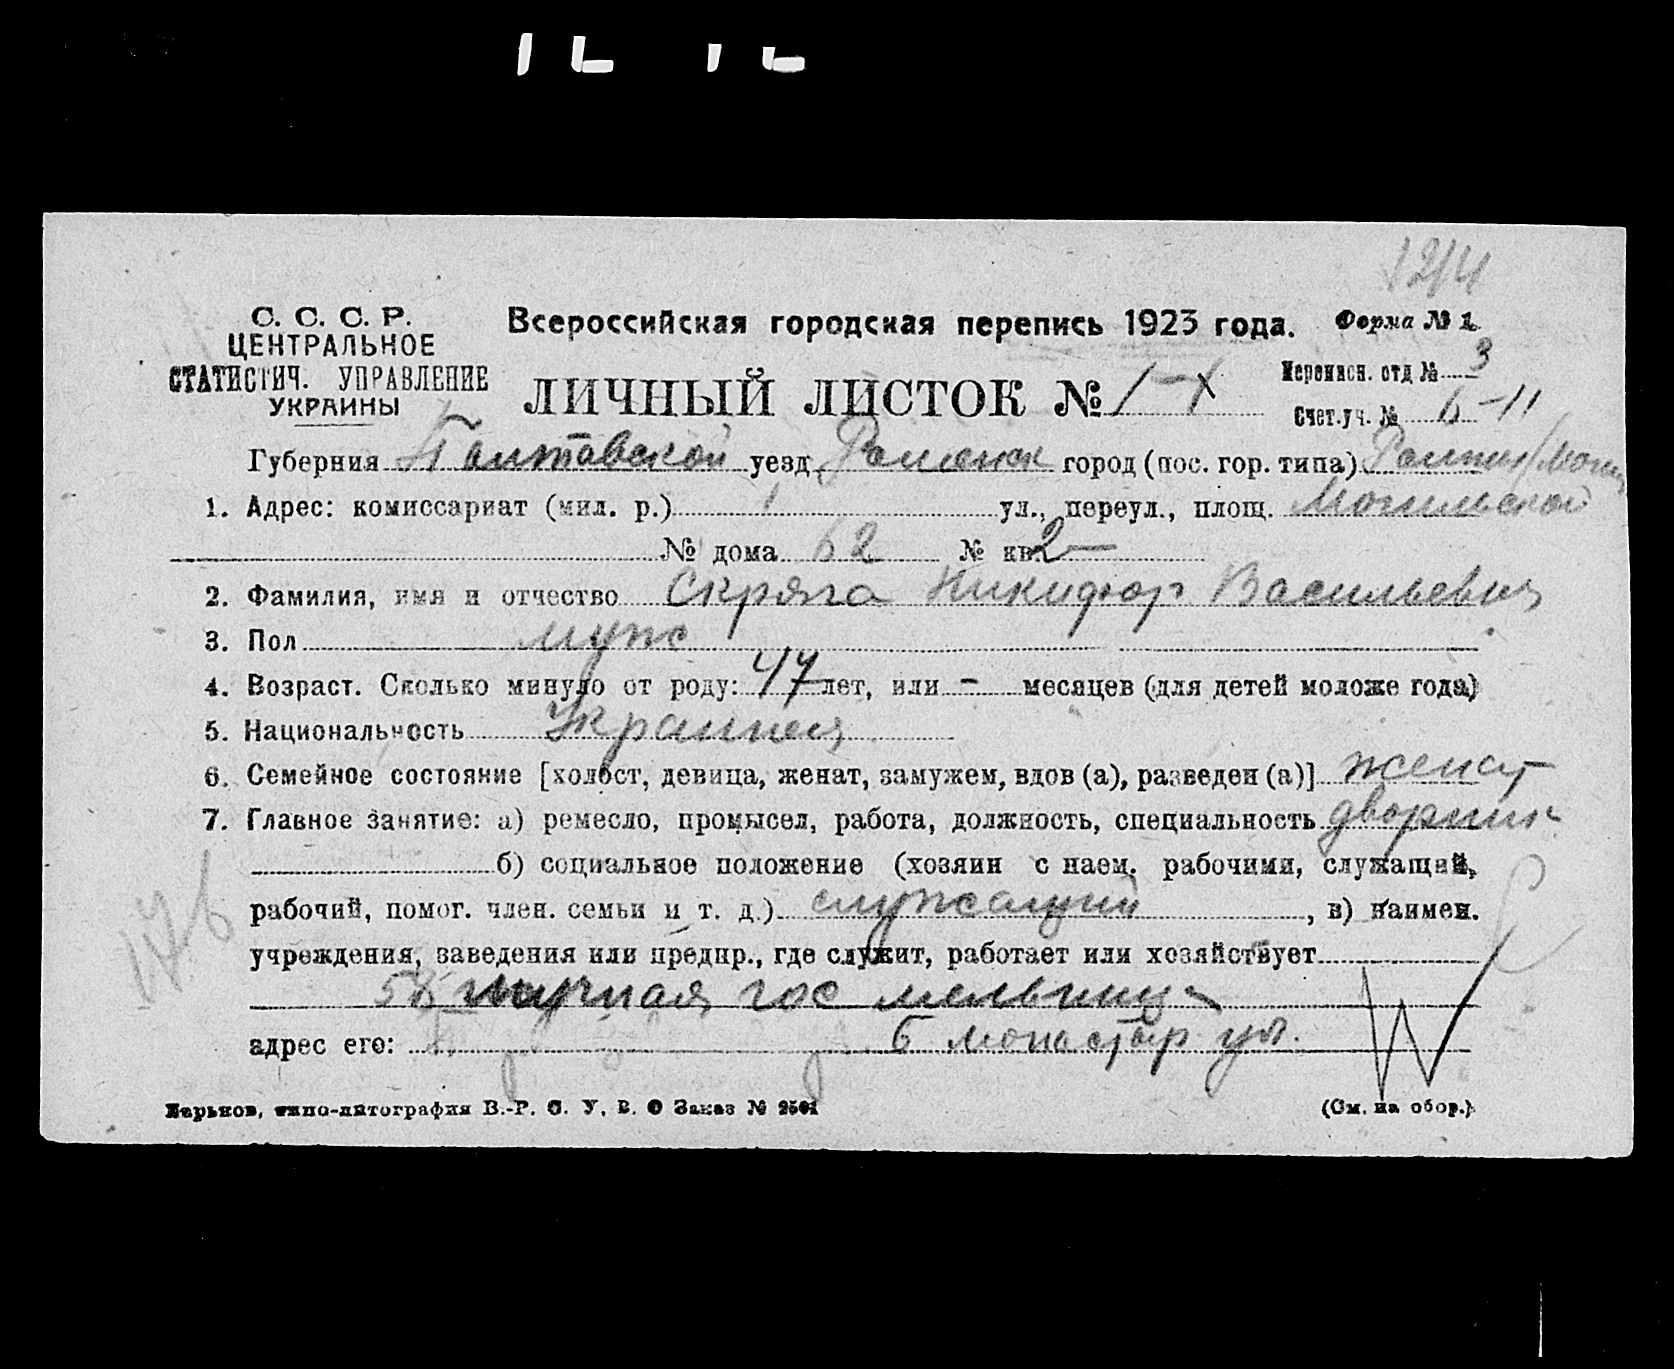 1214
С. С. С. Р.
ЦЕНТРАЛЬНОЕ
СТАТИСТИЧ. УПРАВЛЕНИЕ
УКРАИНЫ
Всероссийская городская перепись 1923 года.
Форма № 1.
ЛИЧНЫЙ ЛИСТОК № 1-
Переписн. отд № 3
Счет.уч. № -11
Губерния Полтавской уезд Роменск город (пос. гор. типа)
1. Адрес: комиссариат (мил. р.) 1 ул., переул., площ.
№ дома 62 № кв. 2 —
2. Фамилия, имя и отчество Скряга Никифор Васильевич
3. Пол муж
4. Возраст. Сколько минуло от роду: 47 лет, или - месяцев (для детей моложе года)
5. Национальность Украинец
6. Семейное состояние [холост, девица, женат, замужем, вдов (а), разведен (а)] женат
7. Главное занятие: а) ремесло, промысел, работа, должность, специальность дворник
б) социальное положение (хозяин с наем. рабочими, служащий,
рабочий, помог. член. семьи и т. д.) служащий, в) наимен.
учреждения, заведения или предпр., где служит, работает или хозяйствует
58 гос мельница
адрес его: Б монастыр ул.
176
Харьков, типо-литография В.-Р. С. У. В. О Заказ № 2501
(См. на обор.)